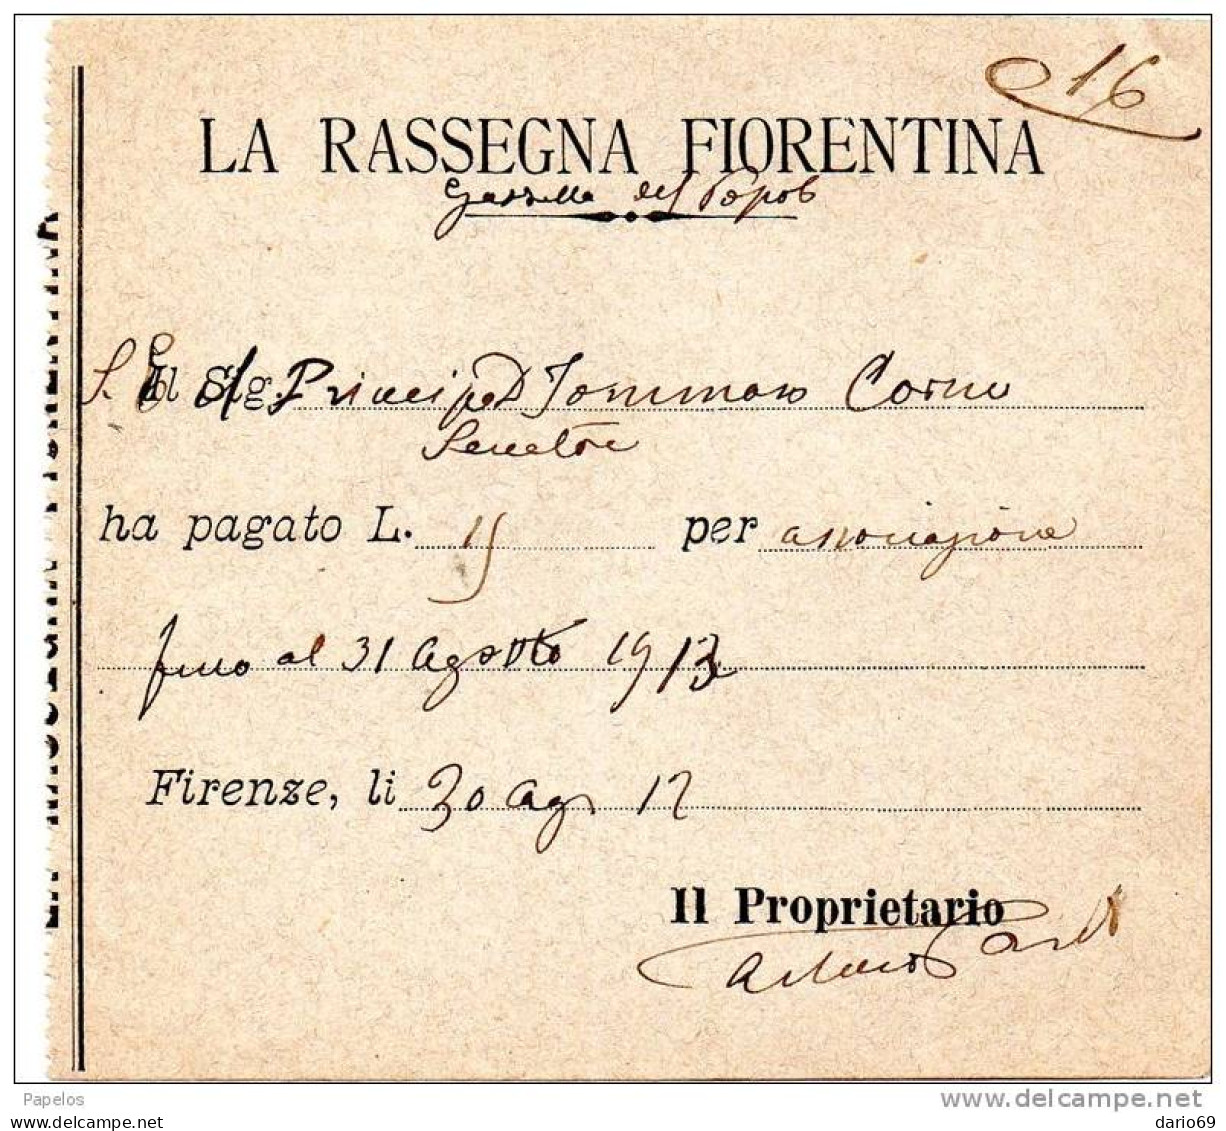 16
LA RASSEGNA FIORENTINA
Gazzella del Popolo
S. E. Il Sig. Principe D Tommaso Corsini
Senatore
ha pagato L. 15 per associazione
fino al 31 Agosto 1913
Firenze, li 30 Ag 12
Il Proprietario
Papelos
delcampe.net
www.delcampe.net
dario69